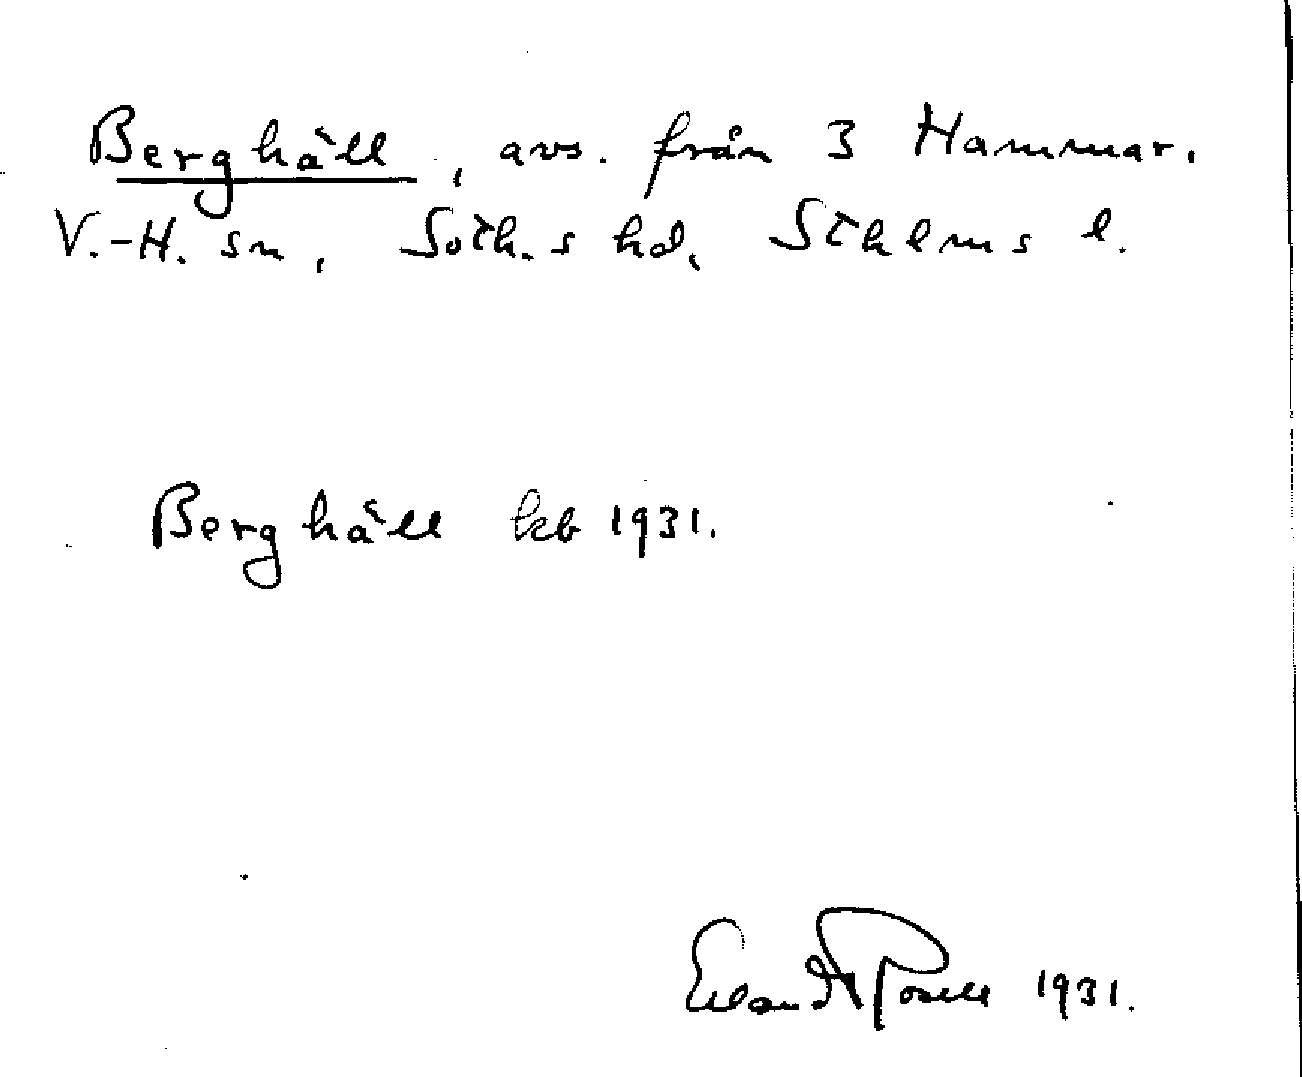 Berghäll, avs. från 3 Hammar.
V.-H. sn, Soth.s hd, Sthlms l.
Berghäll kb 1931.
Erland Rosell 1931.